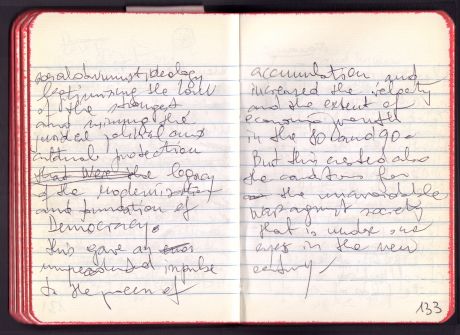 socialdarwinist ideology
legitimising the law
of the strongest
and minimal the
juridical political and
cultural protection
that were the legacy
of the modernization
and formation of
Democracy.
This gave an
unprecedented impulse
to the process of
accumulation and
increased the velocity
and the extent of
economic growth
in the 80 and 90-
But this created also
the conditions for
the unavoidable
war against society
that is under our
eyes in the new
century
133